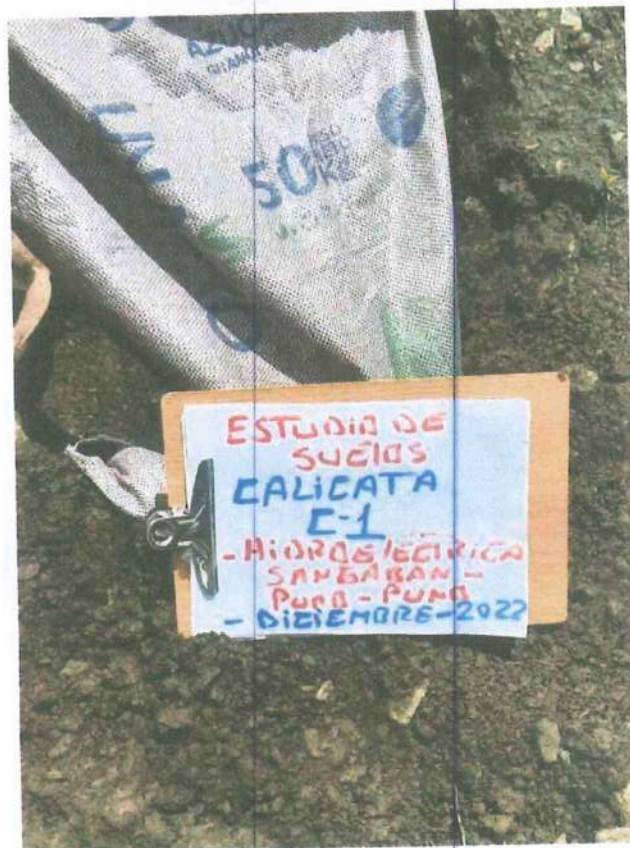 AZUCAR
50 KG
ESTUDIO DE
SUElOS
CALiCATA
C-1
- HiDROElECTRiCA
SANGABAN -
PUNO - PUNO
- DiCIEMBRE - 2022